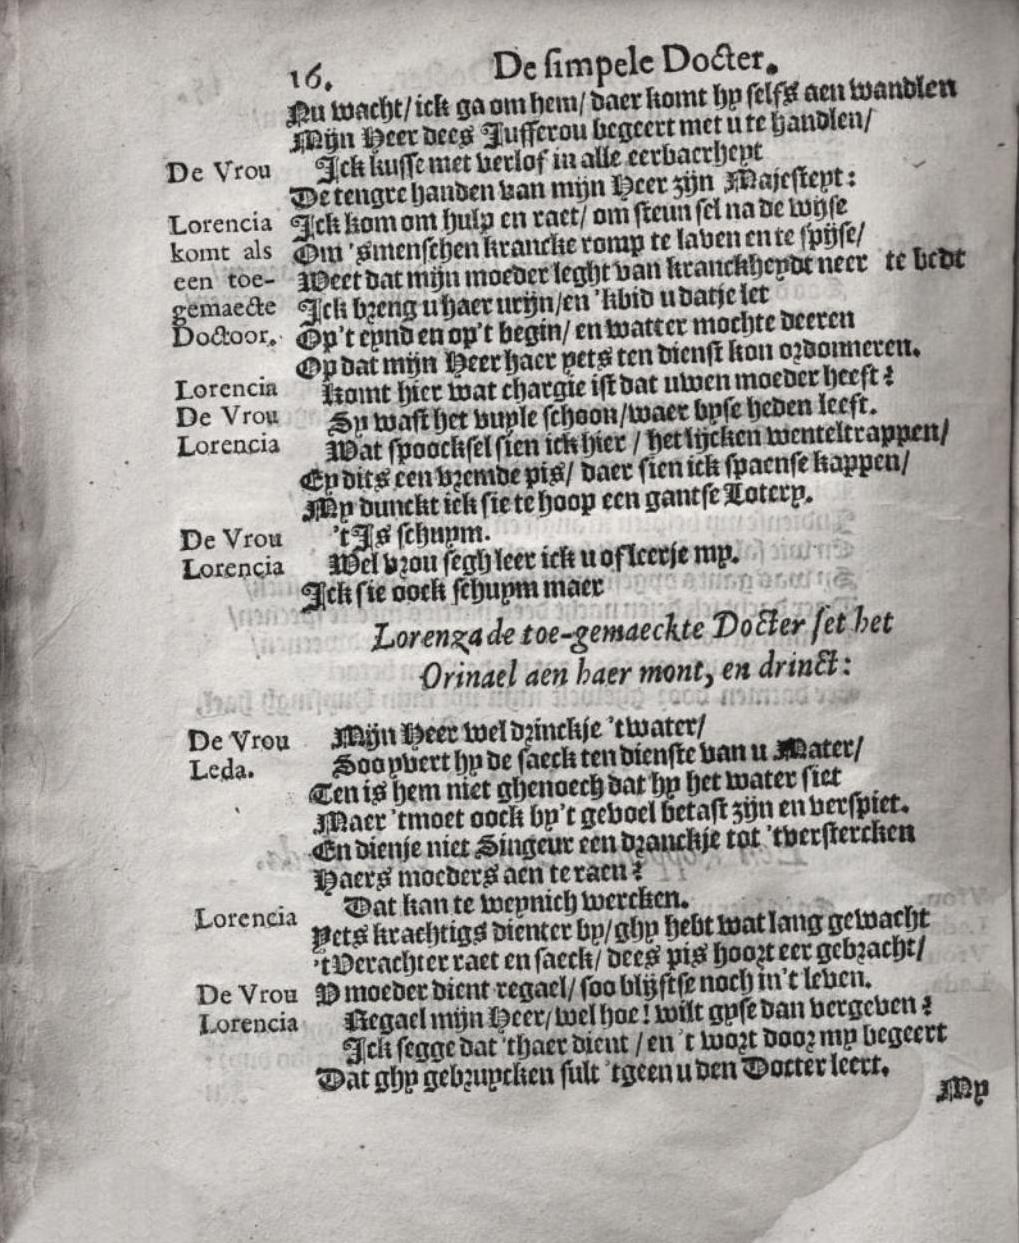 16. De simpele Docter.
Nu wacht/ ick ga om hem/ daer komt hy selfs aen wandlen
Mijn Heer dees Jufferou begeert met u te handlen/
De Vrou Ick kusse met verlof in alle eerbaerheyt
De tengre handen van mijn Heer zijn Majesteyt:
Lorencia Ick kom om hulp en raet/ om steunsel na de wijse
komt als Om 'smenschen krancke romp te laven en te spijse/
een toe- Weet dat mijn moeder leght van kranckheydt neer te bedt
gemaecte Ick breng u haer urijn/ en 'kbid u datje let
Doctoor. Op't eynd en op't begin/ en watter mochte deeren
Op dat mijn Heer haer yets ten dienst kon ordonneren.
Lorencia Komt hier wat chargie ist dat uwen moeder heeft?
De Vrou Sy wast het vuyle schoon/ waer byse heden leeft.
Lorencia Wat spoocksel sien ick hier / het lijcken wenteltrappen/
Ey dits een vremde pis/ daer sien ick spaense kappen/
My dunckt ick sie te hoop een gantse Lotery.
De Vrou 't Is schuym.
Lorencia Wel vrou segh leer ick u of leerje my.
Ick sie oock schuym maer
Lorenza de toe-gemaeckte Docter set het
Orinael aen haer mont, en drinct:
De Vrou Mijn Heer wel drinckje 'twater/
Leda. Soo yvert hy de saeck ten dienste van u Mater/
Ten is hem niet ghenoech dat hy het water siet
Maer 'tmoet oock by't gevoel betast zijn en verspiet.
En dienje niet Singeur een dranckje tot 'tverstercken
Haers moeders aen te raen?
Lorencia Dat kan te weynich wercken.
Yets krachtigs dienter by/ ghy hebt wat lang gewacht
't Veracht er raet en saeck/ dees pis hoort eer gebracht/
De Vrou V moeder dient regael/ soo blijftse noch in't leven.
Lorencia Regael mijn Heer/ wel hoe! wilt gyse dan vergeven?
Ick segge dat 'thaer dient / en 't wort door my begeert
Dat ghy gebruycken sult 'tgeen u den Docter leert.
My